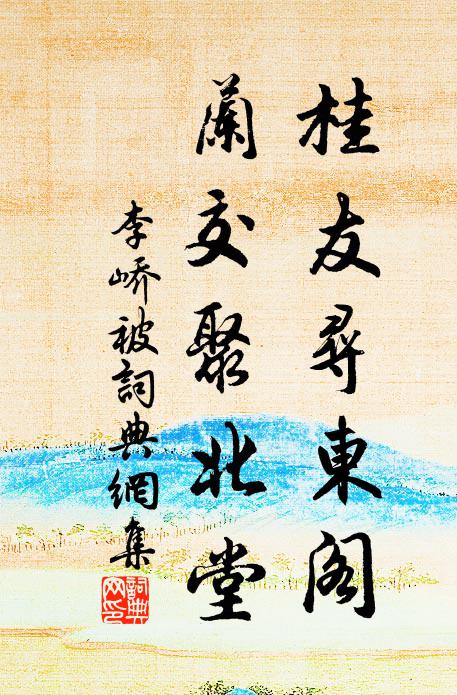 桂友尋東閣
蘭交聚北堂
李嶠被詞典網集
詞典